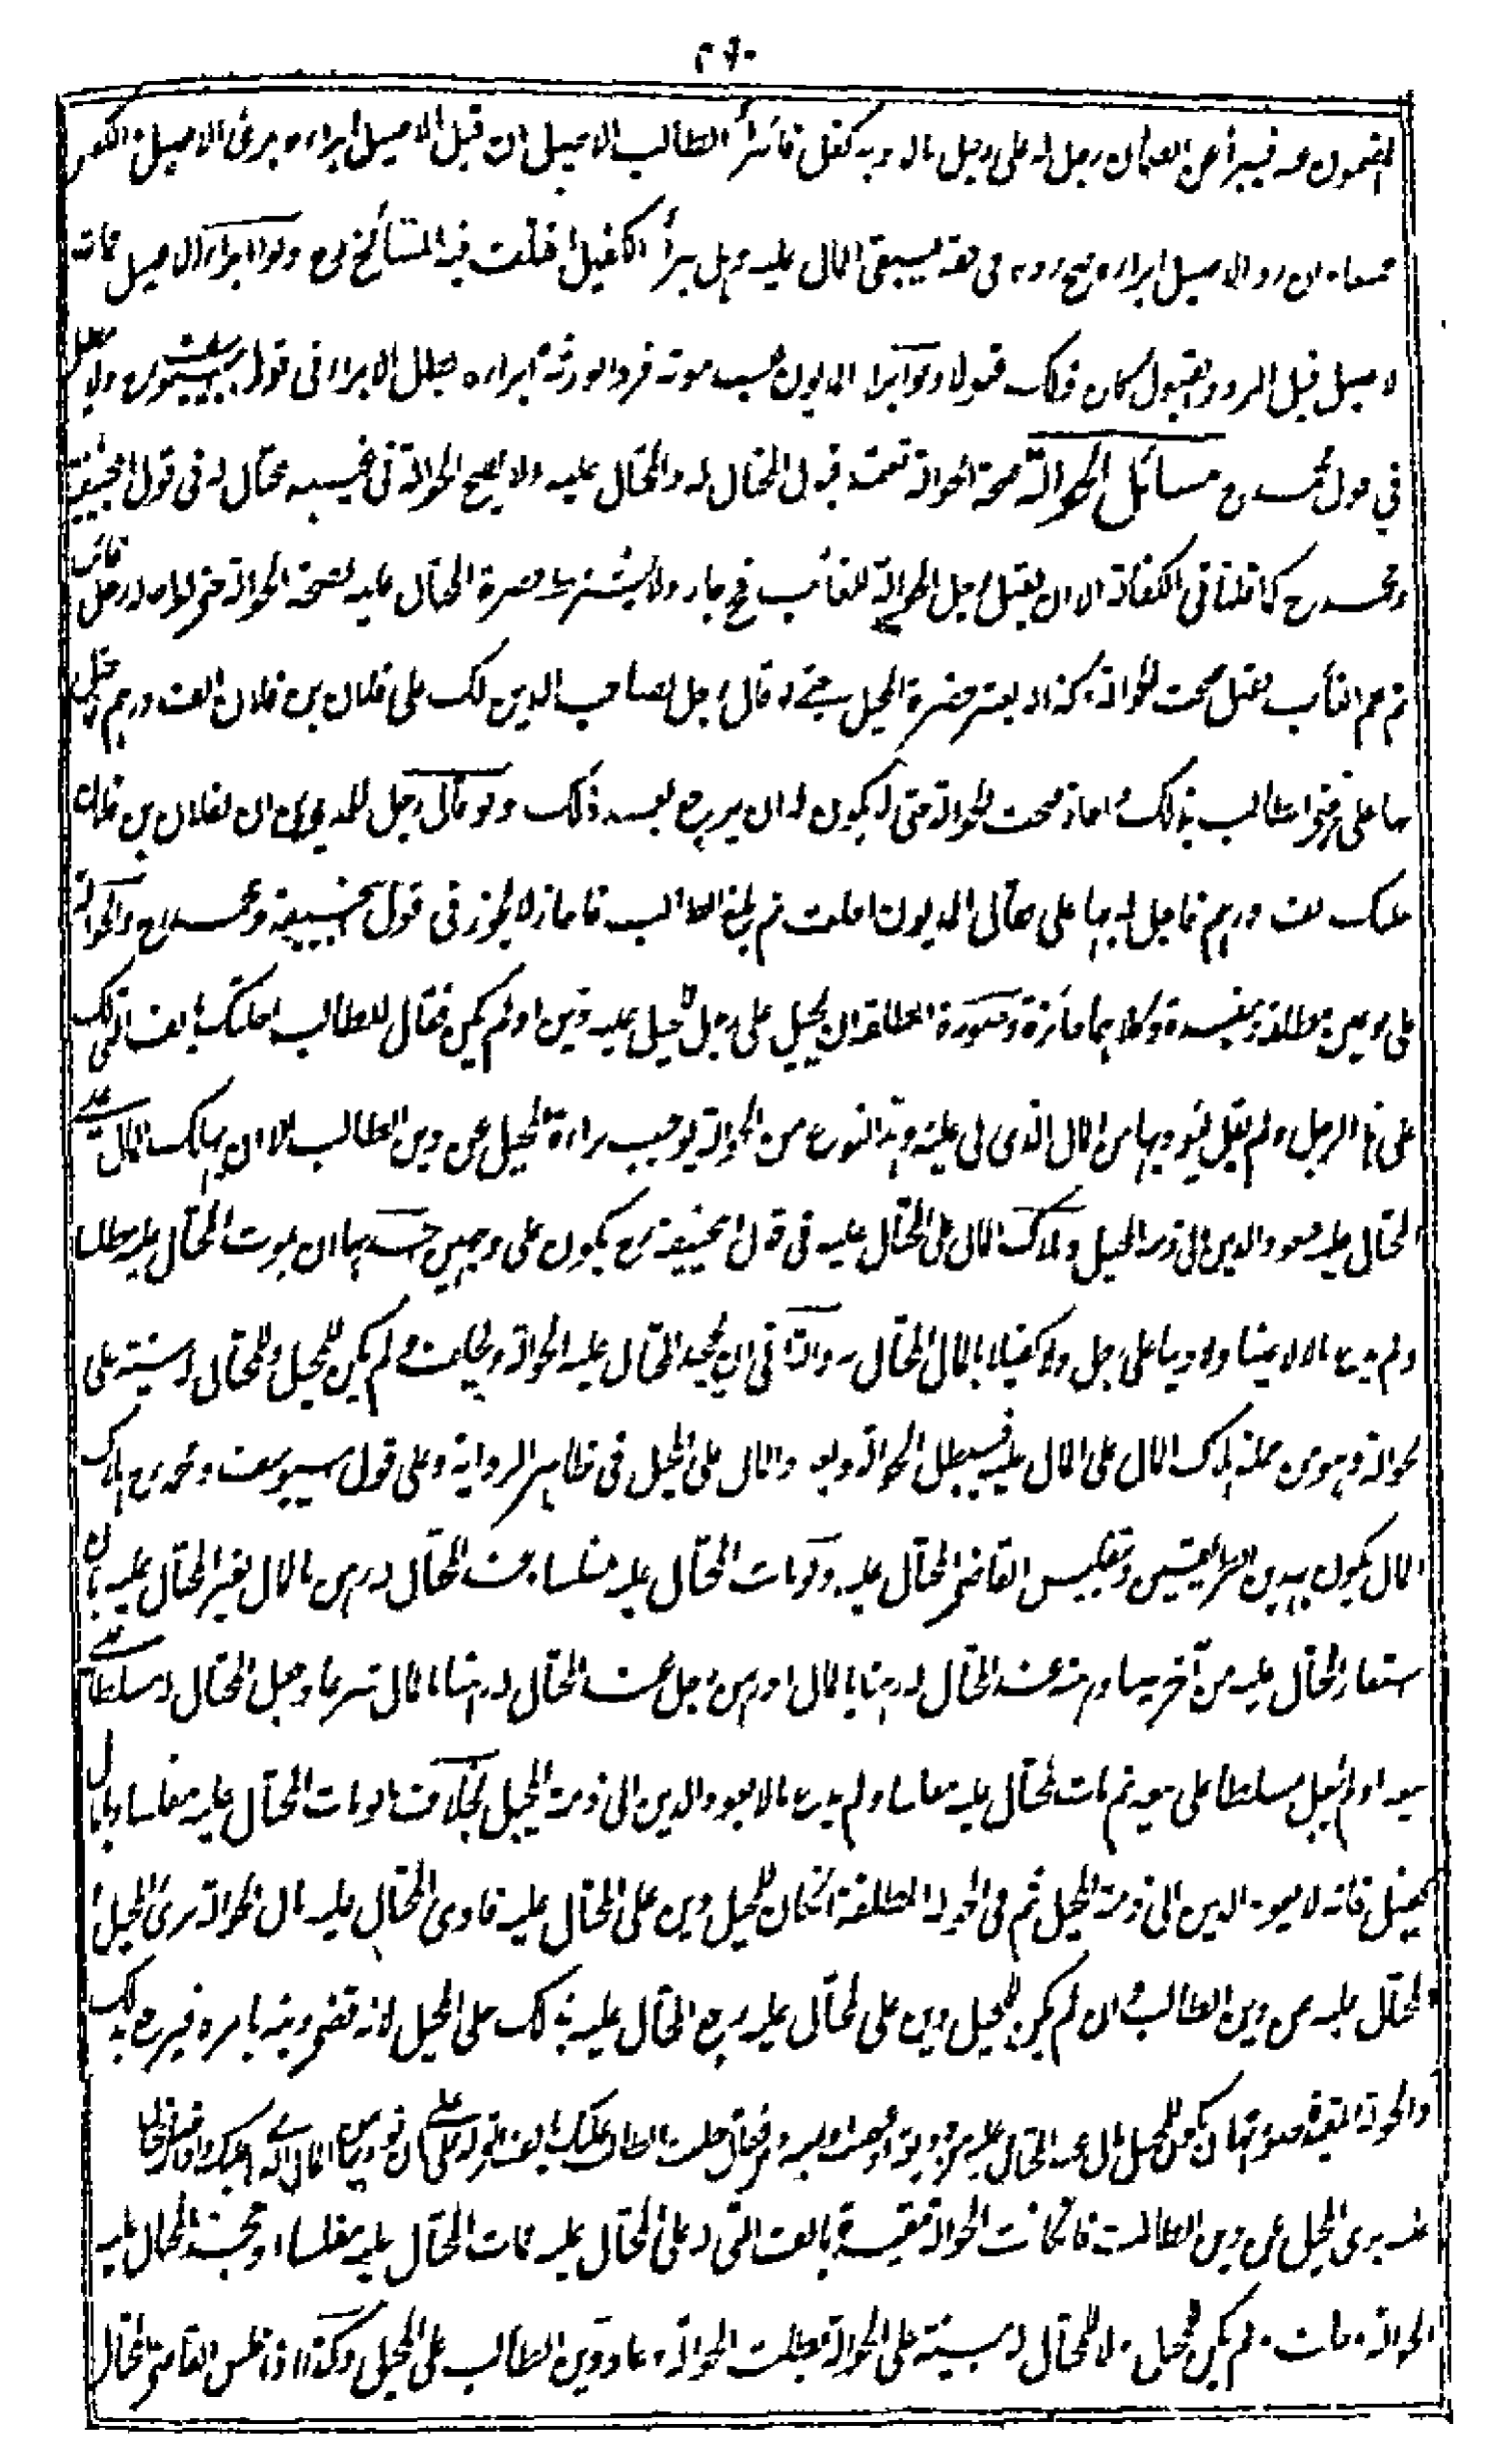 المضمون عنه فيبرأ عن الضمان رجل له على رجل مال وبه كفيل فابرأ الطالب الاصيل ان قبل الاصيل ابراءه برئ الاصيل والكفيل
جميعا وان رد الاصيل ابراءه صح رده فى حقه فيبقى المال عليه وهل يبرأ الكفيل اختلف فيه المشائخ رح ولو ابرأ الاصيل فمات
الاصيل قبل الرد والقبول كان ذلك قبولا ولو ابرأ المديون بعد موته فرد الورثة ابراءه بطل الابراء فى قول ابى يوسف رح ولا يبطل
في قول محمد رح مسائل الحوالة صحة الحوالة تعتمد قبول المحتال له والمحتال عليه ولا يصح الحوالة فى غيبة المحتال له فى قول ابيحنيفة
ومحمد رح كما قلنا فى الكفالة الا ان يقبل رجل الحوالة للغائب فح جاز ولا يشترط حضرة المحتال عليه لصحة الحوالة حتى لو احاله على رجل غائب
ثم علم الغائب فقبل صحت الحوالة وكذا لا يعتبر حضرة المحيل حتى لو قال رجل لصاحب الدين لك على فلان بن فلان الف درهم فاحتل
بها على فرضى الطالب بذلك واجازه صحت الحوالة حتى لا يكون له ان يرجع بعد ذلك ولو قال رجل للمديون ان لفلان بن فلان
عليك الف درهم فاحل له بها على فقال المديون احلت ثم بلغ الطالب فاجاز لا يجوز فى قول ابيحنيفة ومحمد رح والحوالة
على نوعين مطلقة ومقيدة وكلاهما جائزة وصورة المطلقة ان يحيل على رجل للمحيل عليه دين او لم يكن فقال للطالب احلتك بالف التى لك
على هذا الرجل ولم يقل ليؤديها من المال الذى لى عليه وهذا النوع من الحوالة يوجب براءة المحيل عن دين الطالب الا ان يهلك المال على
المحتال عليه فيعود الدين الى ذمة المحيل وهلاك المال على المحتال عليه فى قول ابيحنيفة رح يكون على وجهين احدهما ان يموت المحتال عليه مفلسا
ولم يدع مالا لا عينا ولا دينا على رجل ولا كفيلا بالمال المحتال به والثانى ان يجحد المحتال عليه الحوالة ويحلف ولم يكن للمحيل وللمحتال له بينة على
الحوالة وهو من جملة هلاك المال على المحتال عليه فيبطل الحوالة ويعود المال على المحيل فى ظاهر الرواية وعلى قول ابى يوسف ومحمد رح هلاك
المال يكون بهذين الطريقين وتفليس القاضى المحتال عليه ولو مات المحتال عليه مفلسا وعند المحتال له رهن بالمال لغير المحتال عليه بان
استعار المحتال عليه من آخر عينا ورهنه عند المحتال له رهنا بالمال او رهن رجل عند المحتال له رهنا بالمال تبرعا وجعل المحتال له مسلطا على
بيعه او لم يجعل مسلطا على بيعه ثم مات المحتال عليه مفلسا ولم يدع مالا يعود الدين الى ذمة المحيل بخلاف ما لو مات المحتال عليه مفلسا وبالمال
كفيل فانه لا يعود الدين الى ذمة المحيل ثم فى الحوالة المطلقة ان كان للمحيل دين على المحتال عليه فادى المحتال عليه مال الحوالة برئ المحيل و
المحتال عليه من دين الطالب وان لم يكن للمحيل دين على المحتال عليه رجع المحتال عليه بذلك على المحيل لانه قضى دينه بامره فيرجع بذلك
والحوالة المقيدة صورتها ان يكون للمحيل مال عند المحتال عليه من وديعة او غصب او دين
عنه برئ المحيل عن دين الطالب فان كانت الحوالة مقيدة بالف التى له على المحتال عليه فمات المحتال عليه مفلسا او جحد المحتال عليه
الحوالة وحلف ولم يكن للمحيل ولا للمحتال له بينة على الحوالة بطلت الحوالة وعاد دين الطالب على المحيل وكذا اذا فلس القاضى المحتال